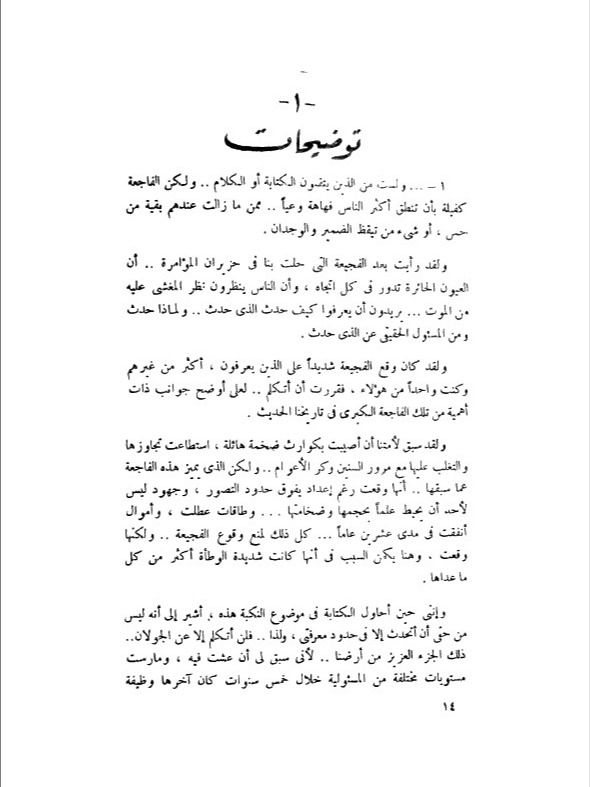 -١-
توضيحات
١ – ... ولست من الذين يتقنون الكتابة أو الكلام .. ولكن الفاجعة
كفيلة بأن تنطق أكثر الناس فهاهة وعياً .. ممن ما زالت عندهم بقية من
حس ، أو شيء من تيقظ الضمير والوجدان .
ولقد رأيت بعد الفجيعة التى حلت بنا فى حزيران المؤامرة .. أن
العيون الحائرة تدور فى كل اتجاه ، وأن الناس ينظرون نظر المغشى عليه
من الموت ... يريدون أن يعرفوا كيف حدث الذى حدث .. ولماذا حدث
ومن المسئول الحقيقى عن الذى حدث .
ولقد كان وقع الفجيعة شديداً على الذين يعرفون ، أكثر من غيرهم
وكنت واحداً من هؤلاء ، فقررت أن أتكلم .. لعلى أوضح جوانب ذات
أهمية من تلك الفاجعة الكبرى فى تاريخنا الحديث .
ولقد سبق لأمتنا أن أصيبت بكوارث ضخمة هائلة ، استطاعت تجاوزها
والتغلب عليها مع مرور السنين وكر الأعوام .. ولكن الذى يميز هذه الفاجعة
عما سبقها .. أنها وقعت رغم إعداد يفوق حدود التصور ، وجهود ليس
لأحد أن يحيط علماً بحجمها وضخامتها ... وطاقات عطلت ، وأموال
أنفقت فى مدى عشرين عاماً ... كل ذلك لمنع وقوع الفجيعة .. ولكنها
وقعت ، وهنا يكمن السبب فى أنها كانت شديدة الوطأة أكثر من كل
ما عداها .
وإننى حين أحاول الكتابة فى موضوع النكبة هذه ، أشير إلى أنه ليس
من حقى أن أتحدث إلا فى حدود معرفتى ، ولذا .. فلن أتكلم إلا عن الجولان..
ذلك الجزء العزيز من أرضنا .. لأنى سبق لى أن عشت فيه ، ومارست
مستويات مختلفة من المسئولية خلال خمس سنوات كان آخرها وظيفة
١٤